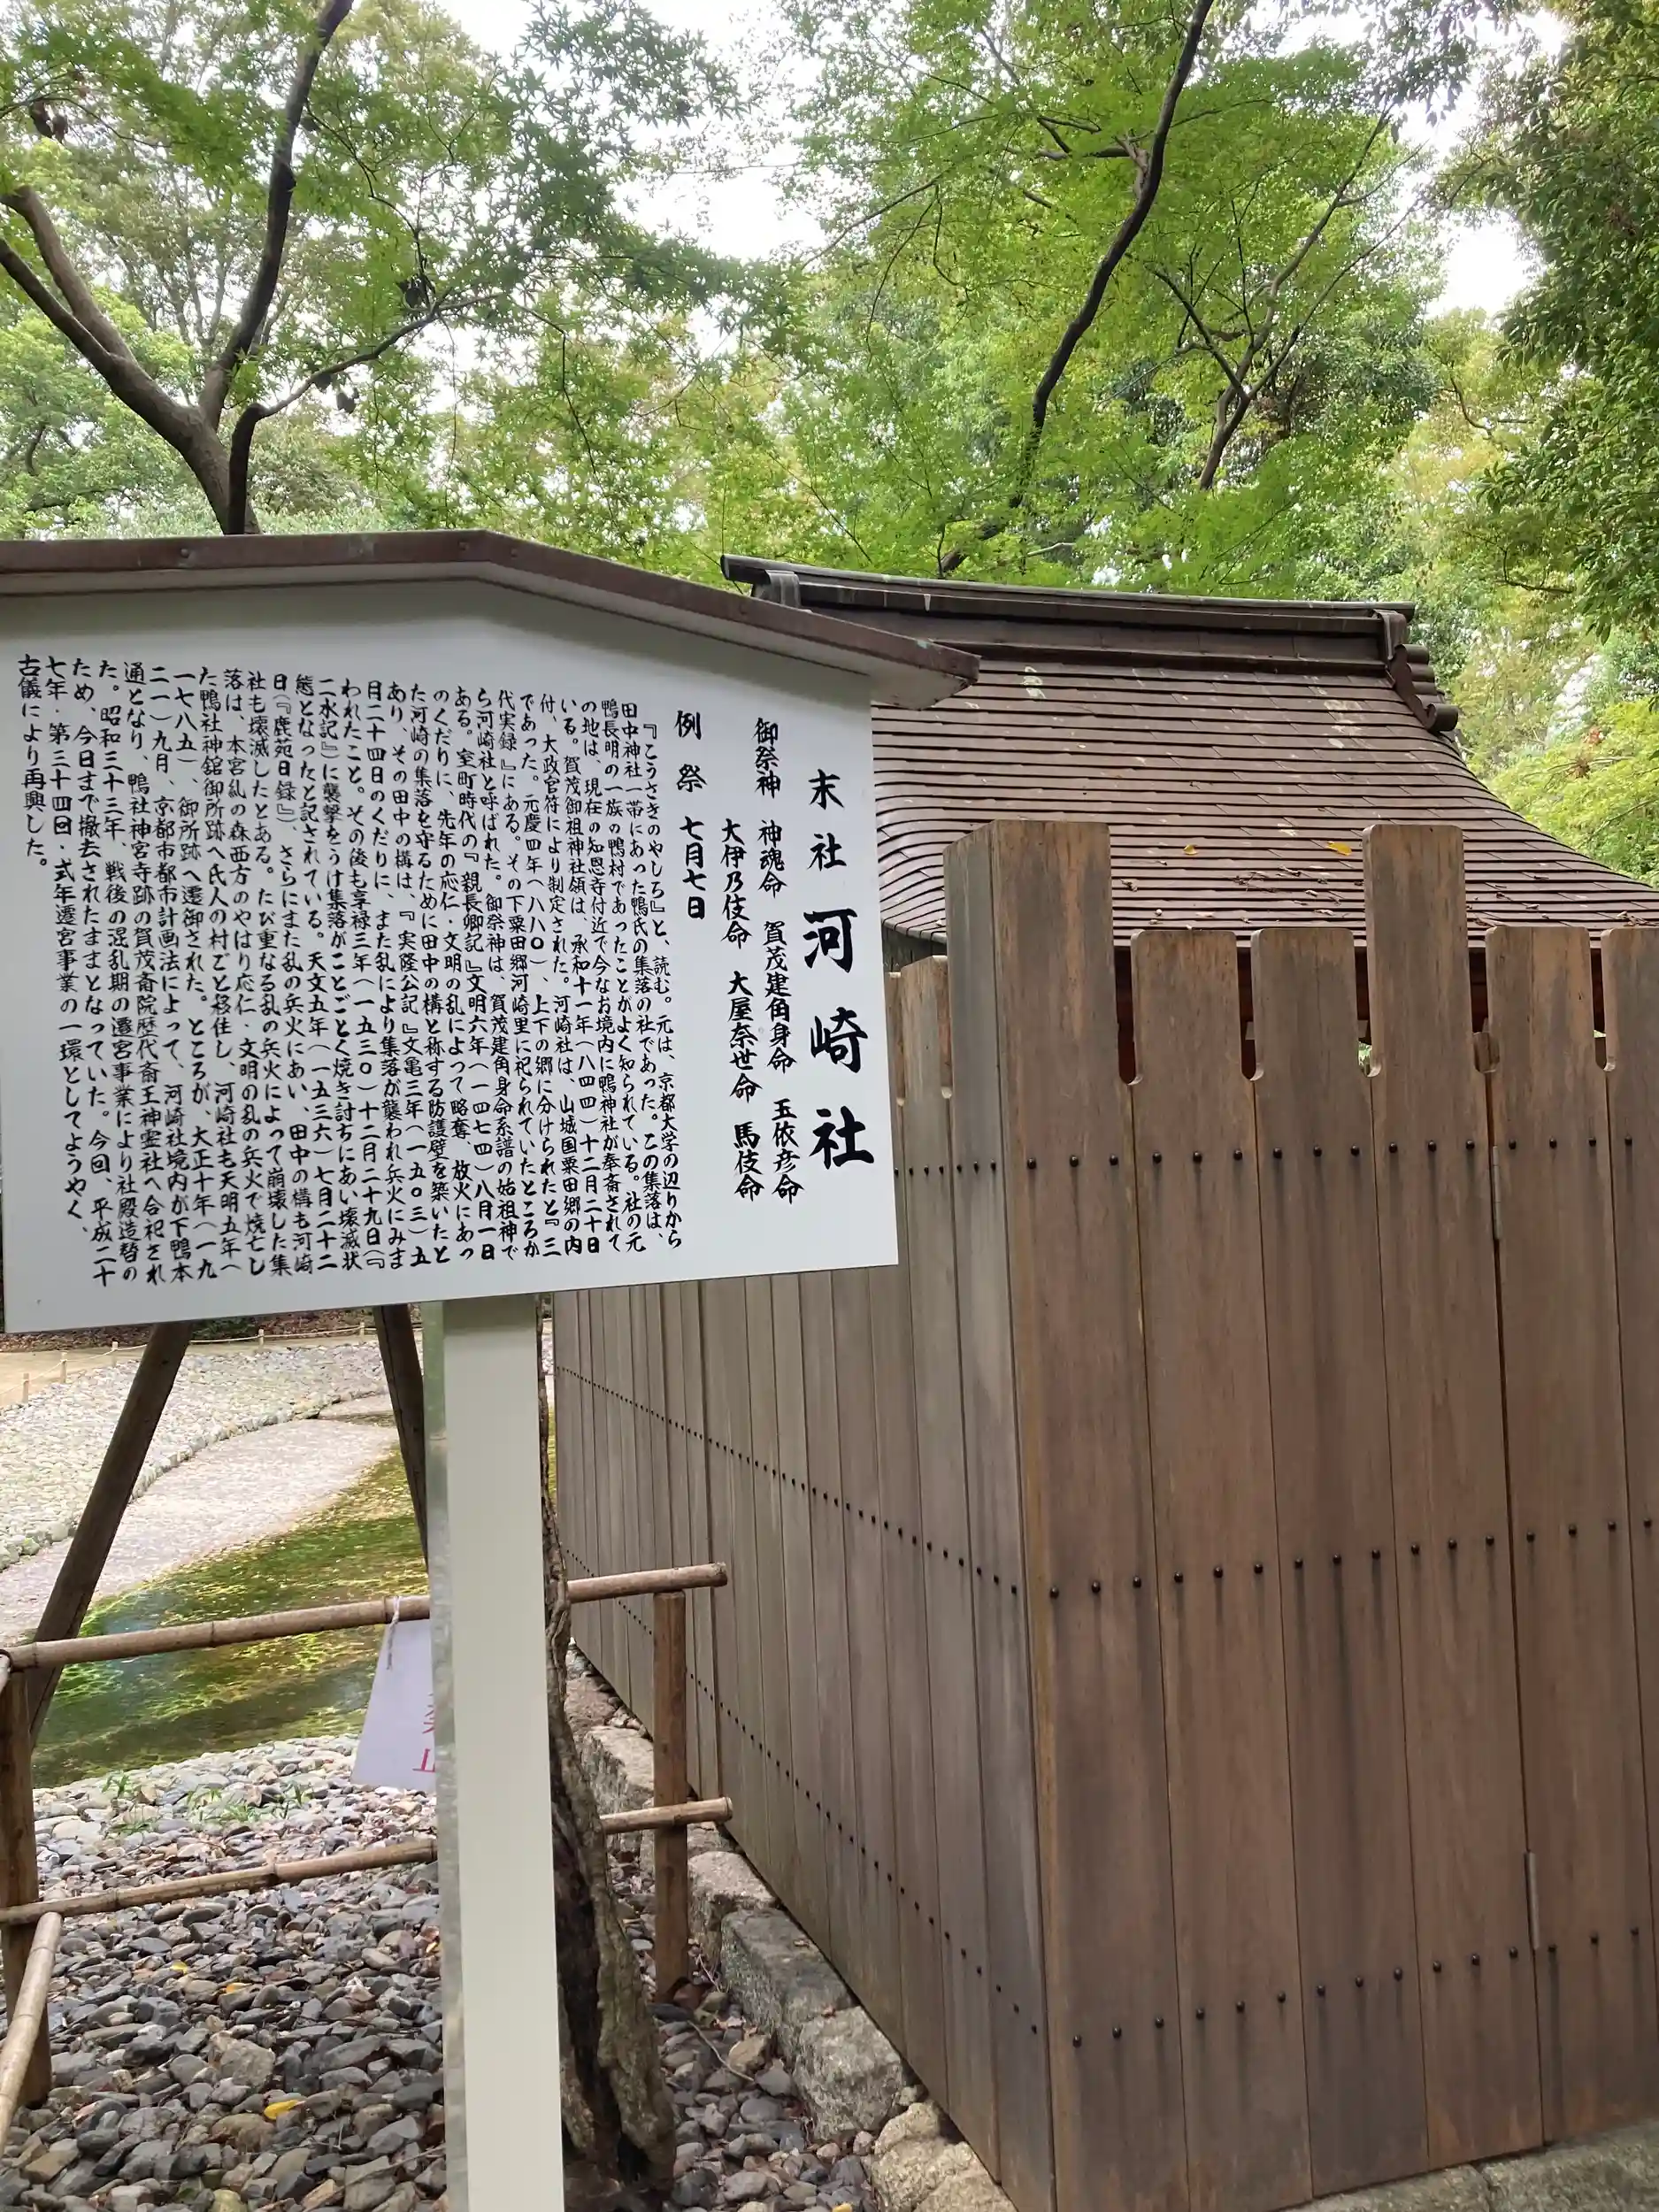 末社 河崎社
御祭神 神魂命 賀茂建角身命 玉依彦命
大伊乃伎命 大屋奈世命 馬伎命
例祭 七月七日
『こうさきのやしろ』と、読む。元は、京都大学の辺りから
田中神社一帯にあった鴨氏の集落の社であった。この集落は、
鴨長明の一族の鴨村であったことがよく知られている。社の元
の地は、現在の知恩寺付近で今なお境内に鴨神社が奉斎されて
いる。賀茂御祖神社領は、承和十一年(八四四)十二月二十日
付、大政官符により制定された。河崎社は、山城国粟田郷の内
であった。元慶四年(八八〇)、上下の郷に分けられたと『三
代実録』にある。その下粟田郷河崎里に祀られていたところか
ら河崎社と呼ばれた。御祭神は、賀茂建角身命系譜の始祖神で
ある。室町時代の『親長卿記』文明六年(一四七四)八月一日
のくだりに、先年の応仁・文明の乱によって略奪、放火にあっ
た河崎の集落を守るために田中の構と称する防護壁を築いたと
あり、その田中の構は、『実隆公記』文亀三年(一五〇三)五
月二十四日のくだりに、また乱により集落が襲われ兵火にみま
われたこと。その後も享禄三年(一五三〇)十二月二十九日(『
二水記』)に襲撃をうけ集落がことごとく焼き討ちにあい壊滅状
態となったと記されている。天文五年(一五三六)七月二十二
日(『鹿苑日録』)、さらにまた乱の兵火にあい、田中の構も河崎
社も壊滅したとある。たび重なる乱の兵火によって崩壊した集
落は、本宮糺の森西方のやはり応仁・文明の乱の兵火で焼亡し
た鴨社神舘御所跡へ氏人の村ごと移住し、河崎社も天明五年(
一七八五)、御所跡へ遷御された。ところが、大正十年(一九
二一)九月、京都市都市計画法によって、河崎社境内が下鴨本
通となり、鴨社神宮寺跡の賀茂斎院歴代斎王神霊社へ合祀され
た。昭和三十三年、戦後の混乱期の遷宮事業により社殿造替の
ため、今日まで撤去されたままとなっていた。今回、平成二十
七年・第三十四回・式年遷宮事業の一環としてようやく、
古儀により再興した。